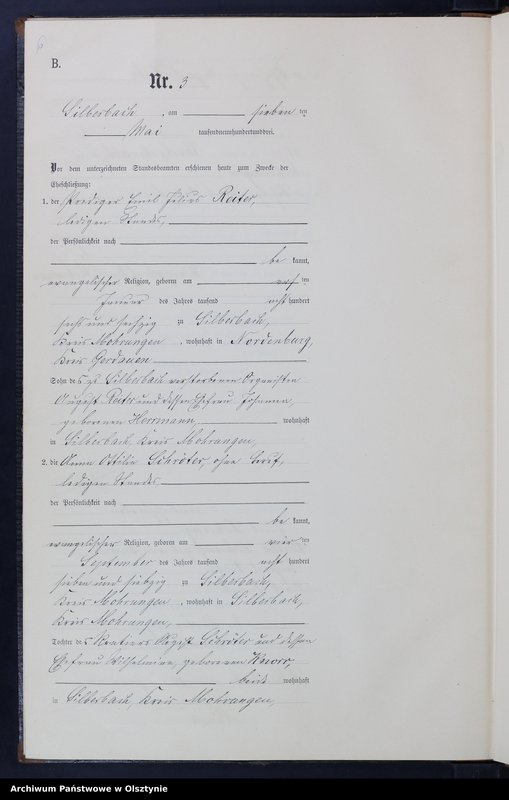 6
B.
Nr. 3
Silberbach, am sieben ten
Mai tausendneunhundertunddrei.
Vor dem unterzeichneten Standesbeamten erschienen heute zum Zwecke der
Eheschließung:
1. der Prediger Emil Julius Reiter,
ledigen Standes,
der Persönlichkeit nach
be kannt,
evangelischer Religion, geboren am ten
Januar des Jahres tausend acht hundert
sechs und sechzig zu Silberbach,
Kreis Mohrungen, wohnhaft in Nordenburg,
Kreis Gerdauen
Sohn des zu Silberbach verstorbenen Organisten
August Reiter und dessen Ehefrau Johanna,
geborenen Herrmann, wohnhaft
in Silberbach, Kreis Mohrungen,
2. die Anna Ottilie Schröter, ohne Beruf,
ledigen Standes,
der Persönlichkeit nach
be kannt,
evangelischer Religion, geboren am vier ten
September des Jahres tausend acht hundert
sieben und siebzig zu Silberbach,
Kreis Mohrungen, wohnhaft in Silberbach,
Kreis Mohrungen,
Tochter des Rentiers August Schröter und dessen
Ehefrau Wilhelmine, geborenen
beide wohnhaft
in Silberbach, Kreis Mohrungen,
Archiwum Państwowe w Olsztynie